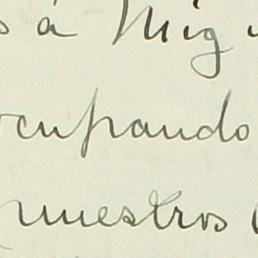 s á Mig
cupando
nuestros